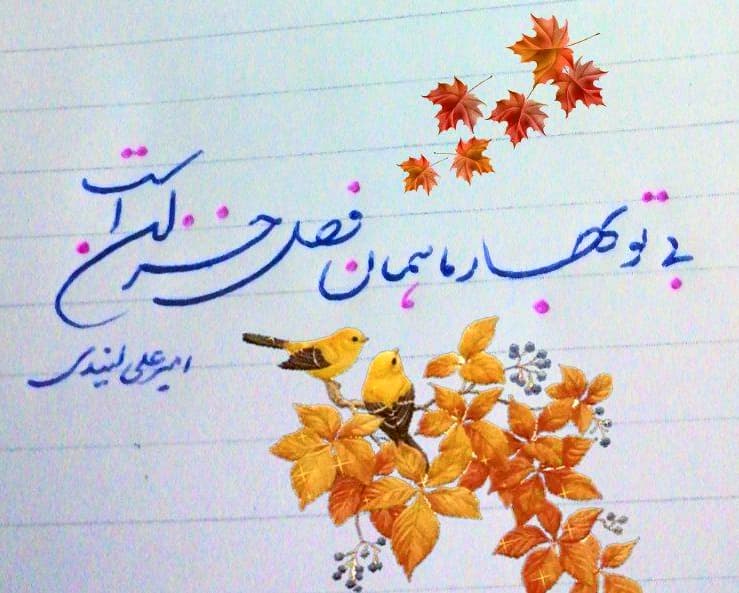 بی تو بهار ما همان فصل خزان است
امیرعلی